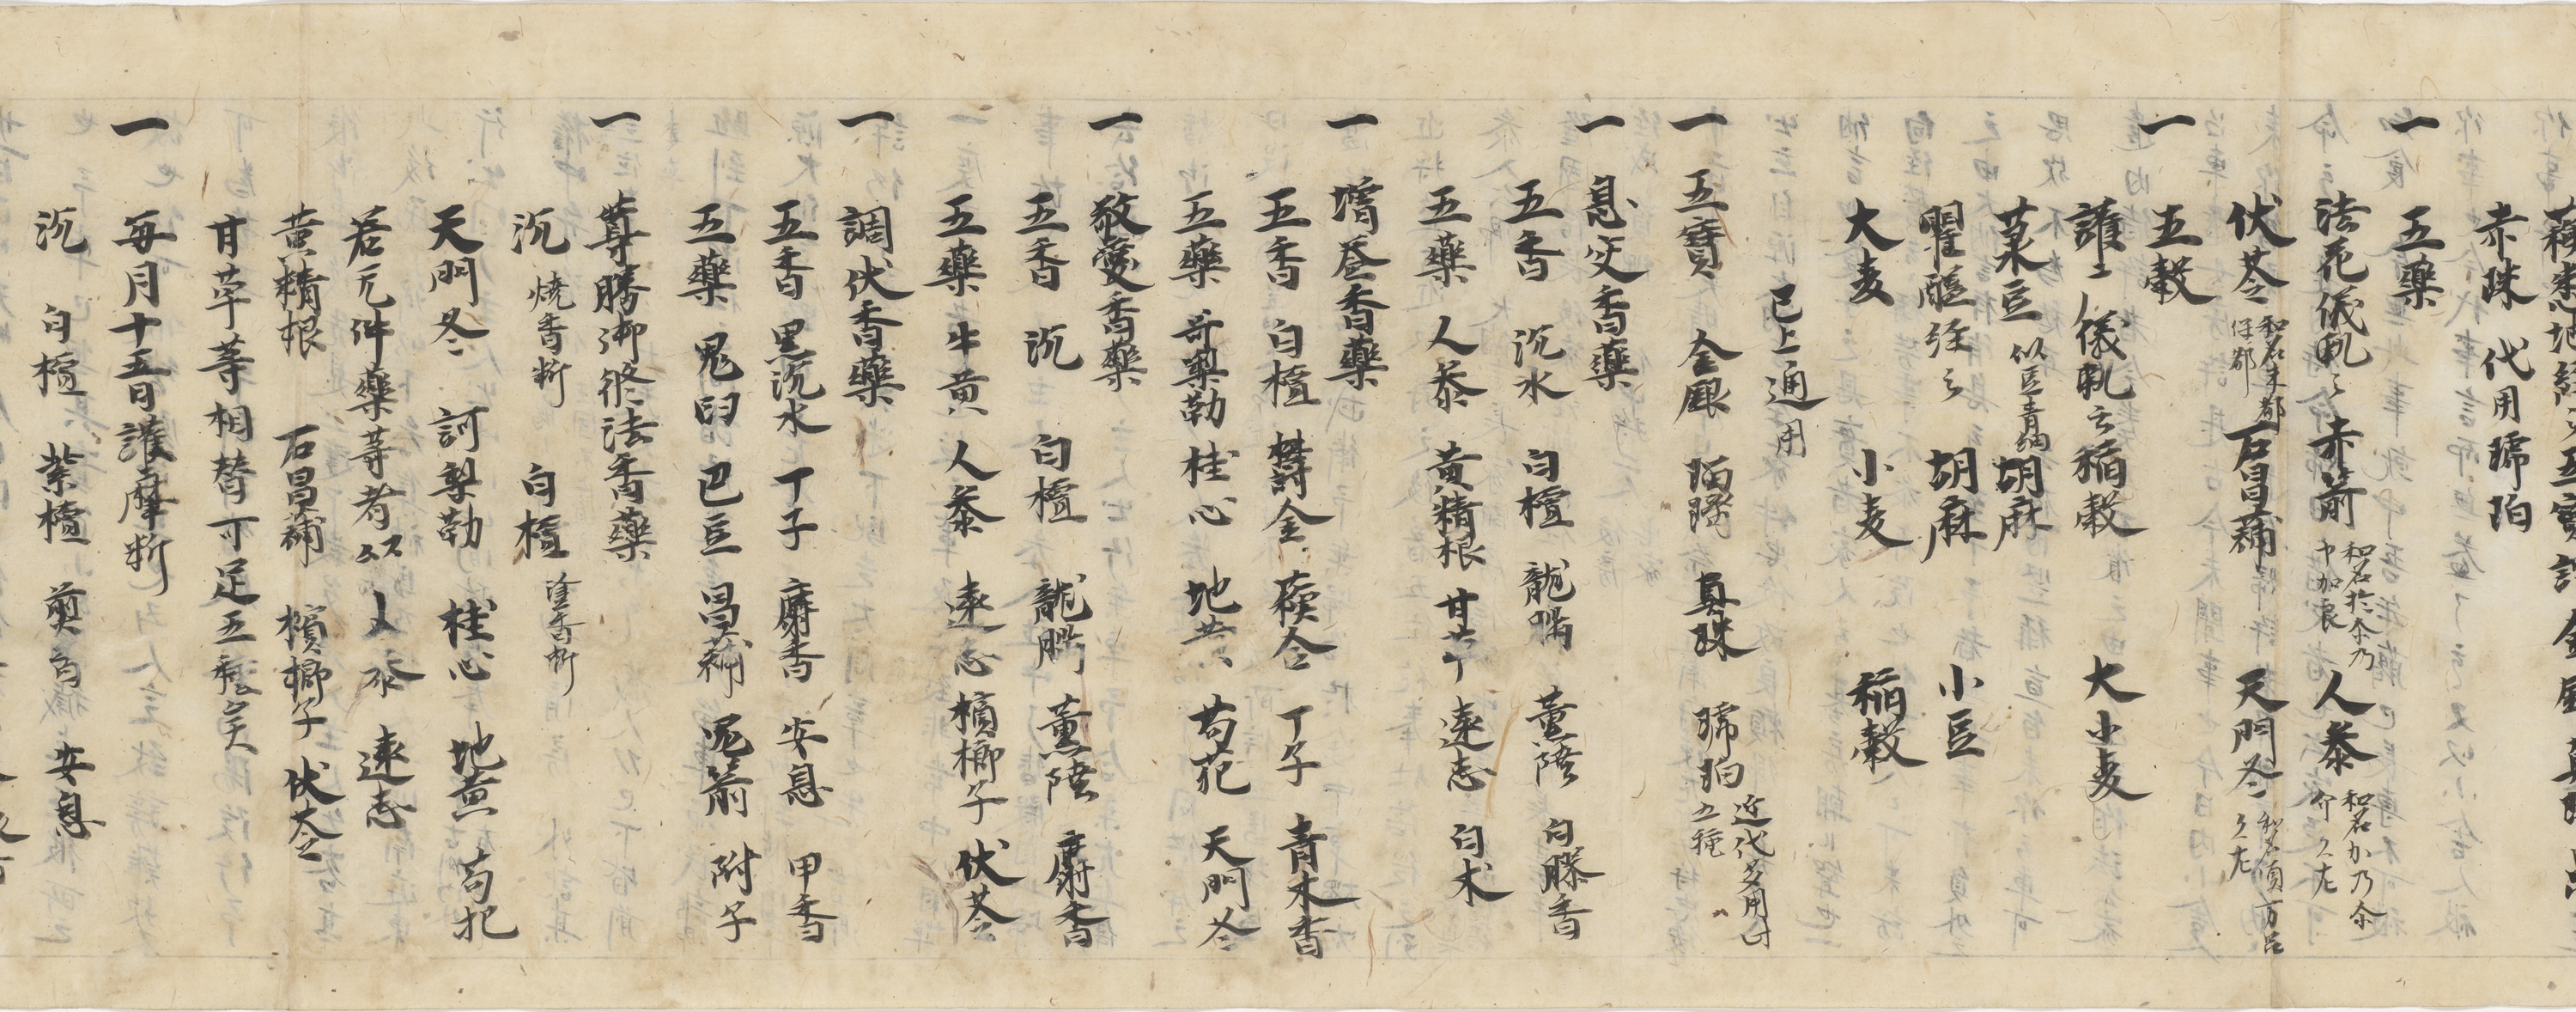 赤珠 代用琥珀
一 五藥
法花儀軌云 赤箭 和名於尒乃 中加良 人參 和名カ乃尒 介久尤
伏苓 和名末都 保都 石昌蒲 天門冬 和名須万呂 久尤
一 五穀
護〻儀軌云 稲穀 大小麦
菉豆 似豆青細 胡麻
瞿醯経云 胡麻 小豆
大麦 小麦 稲穀
已上通用
一 五寶 金 銀 珀 真珠 琥珀 近代多用此 五種
一 息災香藥
五香 沉水 白檀 龍脳 薫陸 白膠香
五藥 人參 黄精根 甘草 遠志 白朮
一 増益香藥
五香 白檀 欝金 蘓合 丁子 青木香
五藥 呵梨勒 桂心 地黄 苟杞 天門冬
一 敬愛香藥
五香 沉 白檀 龍脳 薫陸 麝香
五藥 牛黄 人參 遠志 檳榔子 伏苓
一 調伏香藥
五香 黒沉水 丁子 麝香 安息 甲香
五藥 鬼臼 巴豆 昌蒲 泥箭 附子
一 尊勝御修法香藥
沉 燒香斫 白檀 塗香斫
天門冬 訶梨勒 桂心 地黄 苟杞
若无件藥等者以人參 遠志
黄精根 石昌蒲 檳榔子 伏苓
甘草等相替可足五種矣
一 毎月十五日護摩斫
沉 白檀 紫檀 煎香 安息